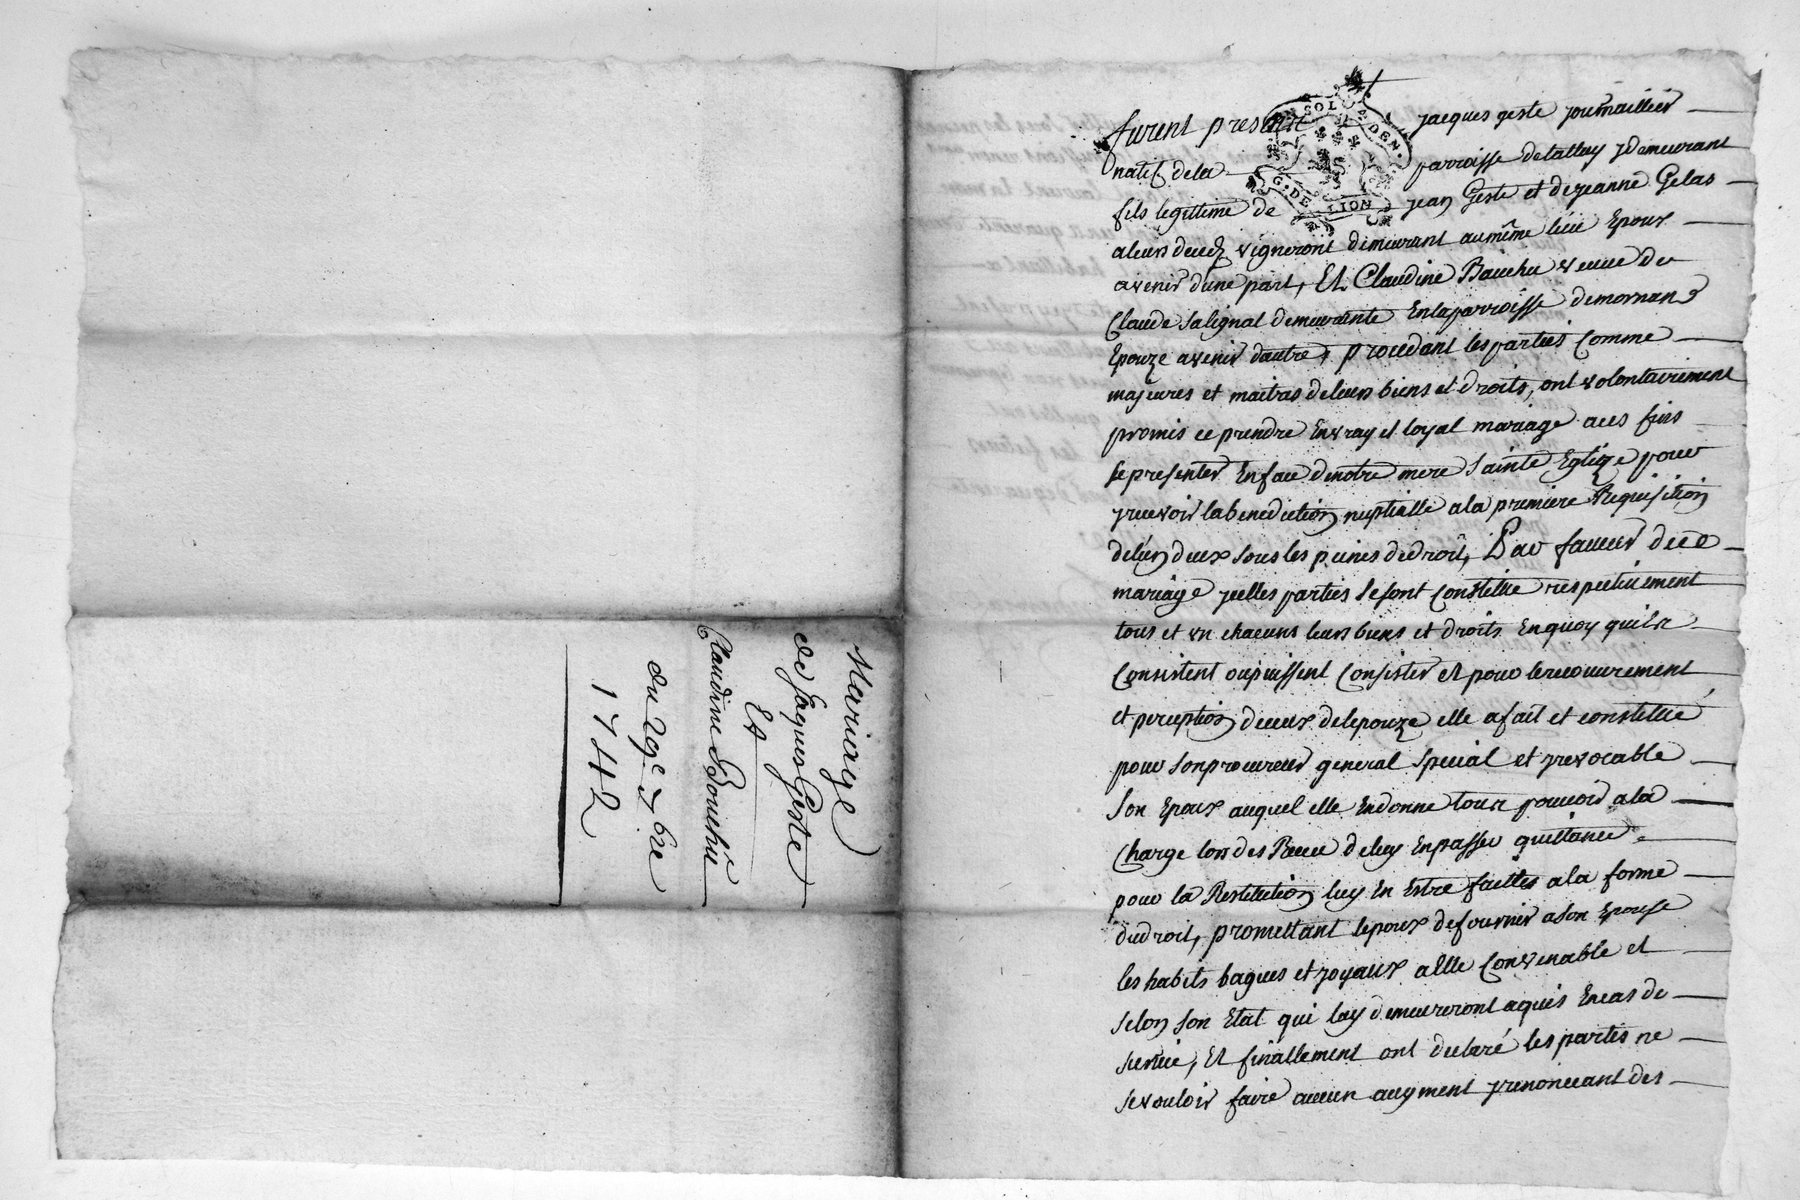 Mariage
de Jaques Geste
Et
Claudine Bouchu
du 29e 7bre
1742
furent presents jacques geste journaillier
natif de la parroisse detalluy y demeurant
fils legittime de jean Geste et de jeanne Gelas
a leurs decedz vignerons demeurant au même lieu Epoux
avenir dune part, Et Claudine Bauchu veuve de
Claude Salignat demeurante En la parroisse demornand
Epouze avenir dautre, procedant les parties Comme
majeures et maitras de leurs biens et droits, ont volontairement
promis ce prendre En vray et loyal mariage a ces fins
se presenter En face de notre mere Sainte Eglize pour
y recevoir la benediction nuptialle a la premiere Requisition
de lun deux sous les peines de droit, Par faveur de ce
mariage y celles parties se font Constitué respectivement
tous et un chacuns leurs biens et droits En quoy quils
Consistent ou puissent Consister et pour le recouvrement
et perception de ceux de lepouze elle a fait et constitué
pour son procureur general Special et yrevocable
Son Epoux auquel elle En donne tous pouvoir a la
Charge lors des Receu de luy En passer quittance
pour la Restitution luy En Estre faittes a la forme
du droit, promettant lepoux de fournir a son Epouse
les habits bagues et joyaux a Elle Convenable et
selon son Etat qui luy demeureront aquis En cas de
survie, Et finallement ont declaré les parties ne
se vouloir faire aucun augment y renoncant des
G. DE LION
SOL
DEN.